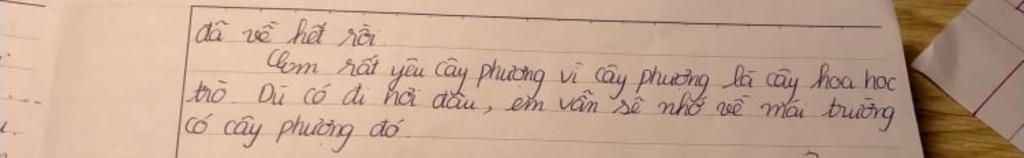 đã về hết rồi.
Em rất yêu cây phượng vì cây phượng là cây hoa học
trò. Dù có đi nơi đâu, em vẫn sẽ nhớ về mái trường
có cây phượng đó.